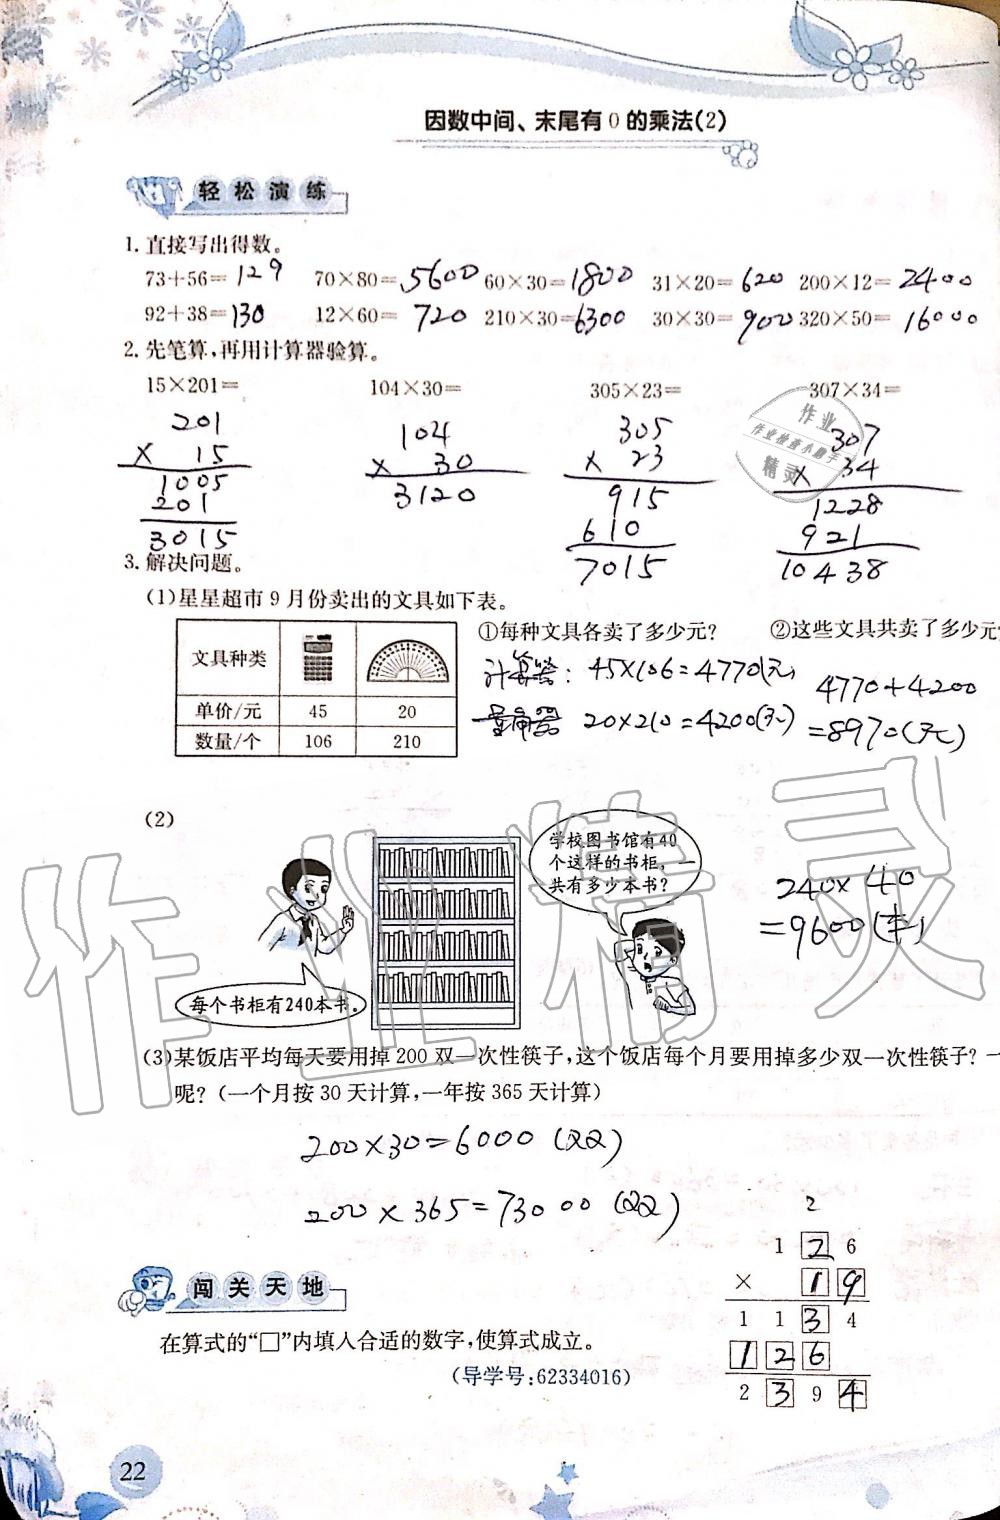 因数中间、末尾有0的乘法(2)
轻松演练
1.直接写出得数。
73+56=129 70×80=5600 60×30=1800 31×20=620 200×12=2400
92+38=130 12×60=720 210×30=6300 30×30=900 320×50=16000
2.先笔算,再用计算器验算。
15×201= 104×30= 305×23= 307×34=
201 104 305 307
× 15 × 30 × 23 × 34
1005 3120 915 1228
201 610 921
3015 7015 10438
作业
作业检查小助手
精灵
3.解决问题。
(1)星星超市9月份卖出的文具如下表。
文具种类
单价/元 45 20
数量/个 106 210
①每种文具各卖了多少元? ②这些文具共卖了多少元
计算器: 45×106=4770(元) 4770+4200
量角器 20×210=4200(元) =8970(元)
(2)
学校图书馆有40
个这样的书柜,一
共有多少本书?
每个书柜有240本书。
240×40
=9600(本)
(3)某饭店平均每天要用掉200双一次性筷子,这个饭店每个月要用掉多少双一次性筷子?一
呢?(一个月按30天计算,一年按365天计算)
200×30=6000(双)
200×365=73000(双)
2
1 2 6
× 1 9
1 1 3 4
1 2 6
2 3 9 4
闯关天地
在算式的“□”内填入合适的数字,使算式成立。
(导学号:62334016)
22
作业精灵